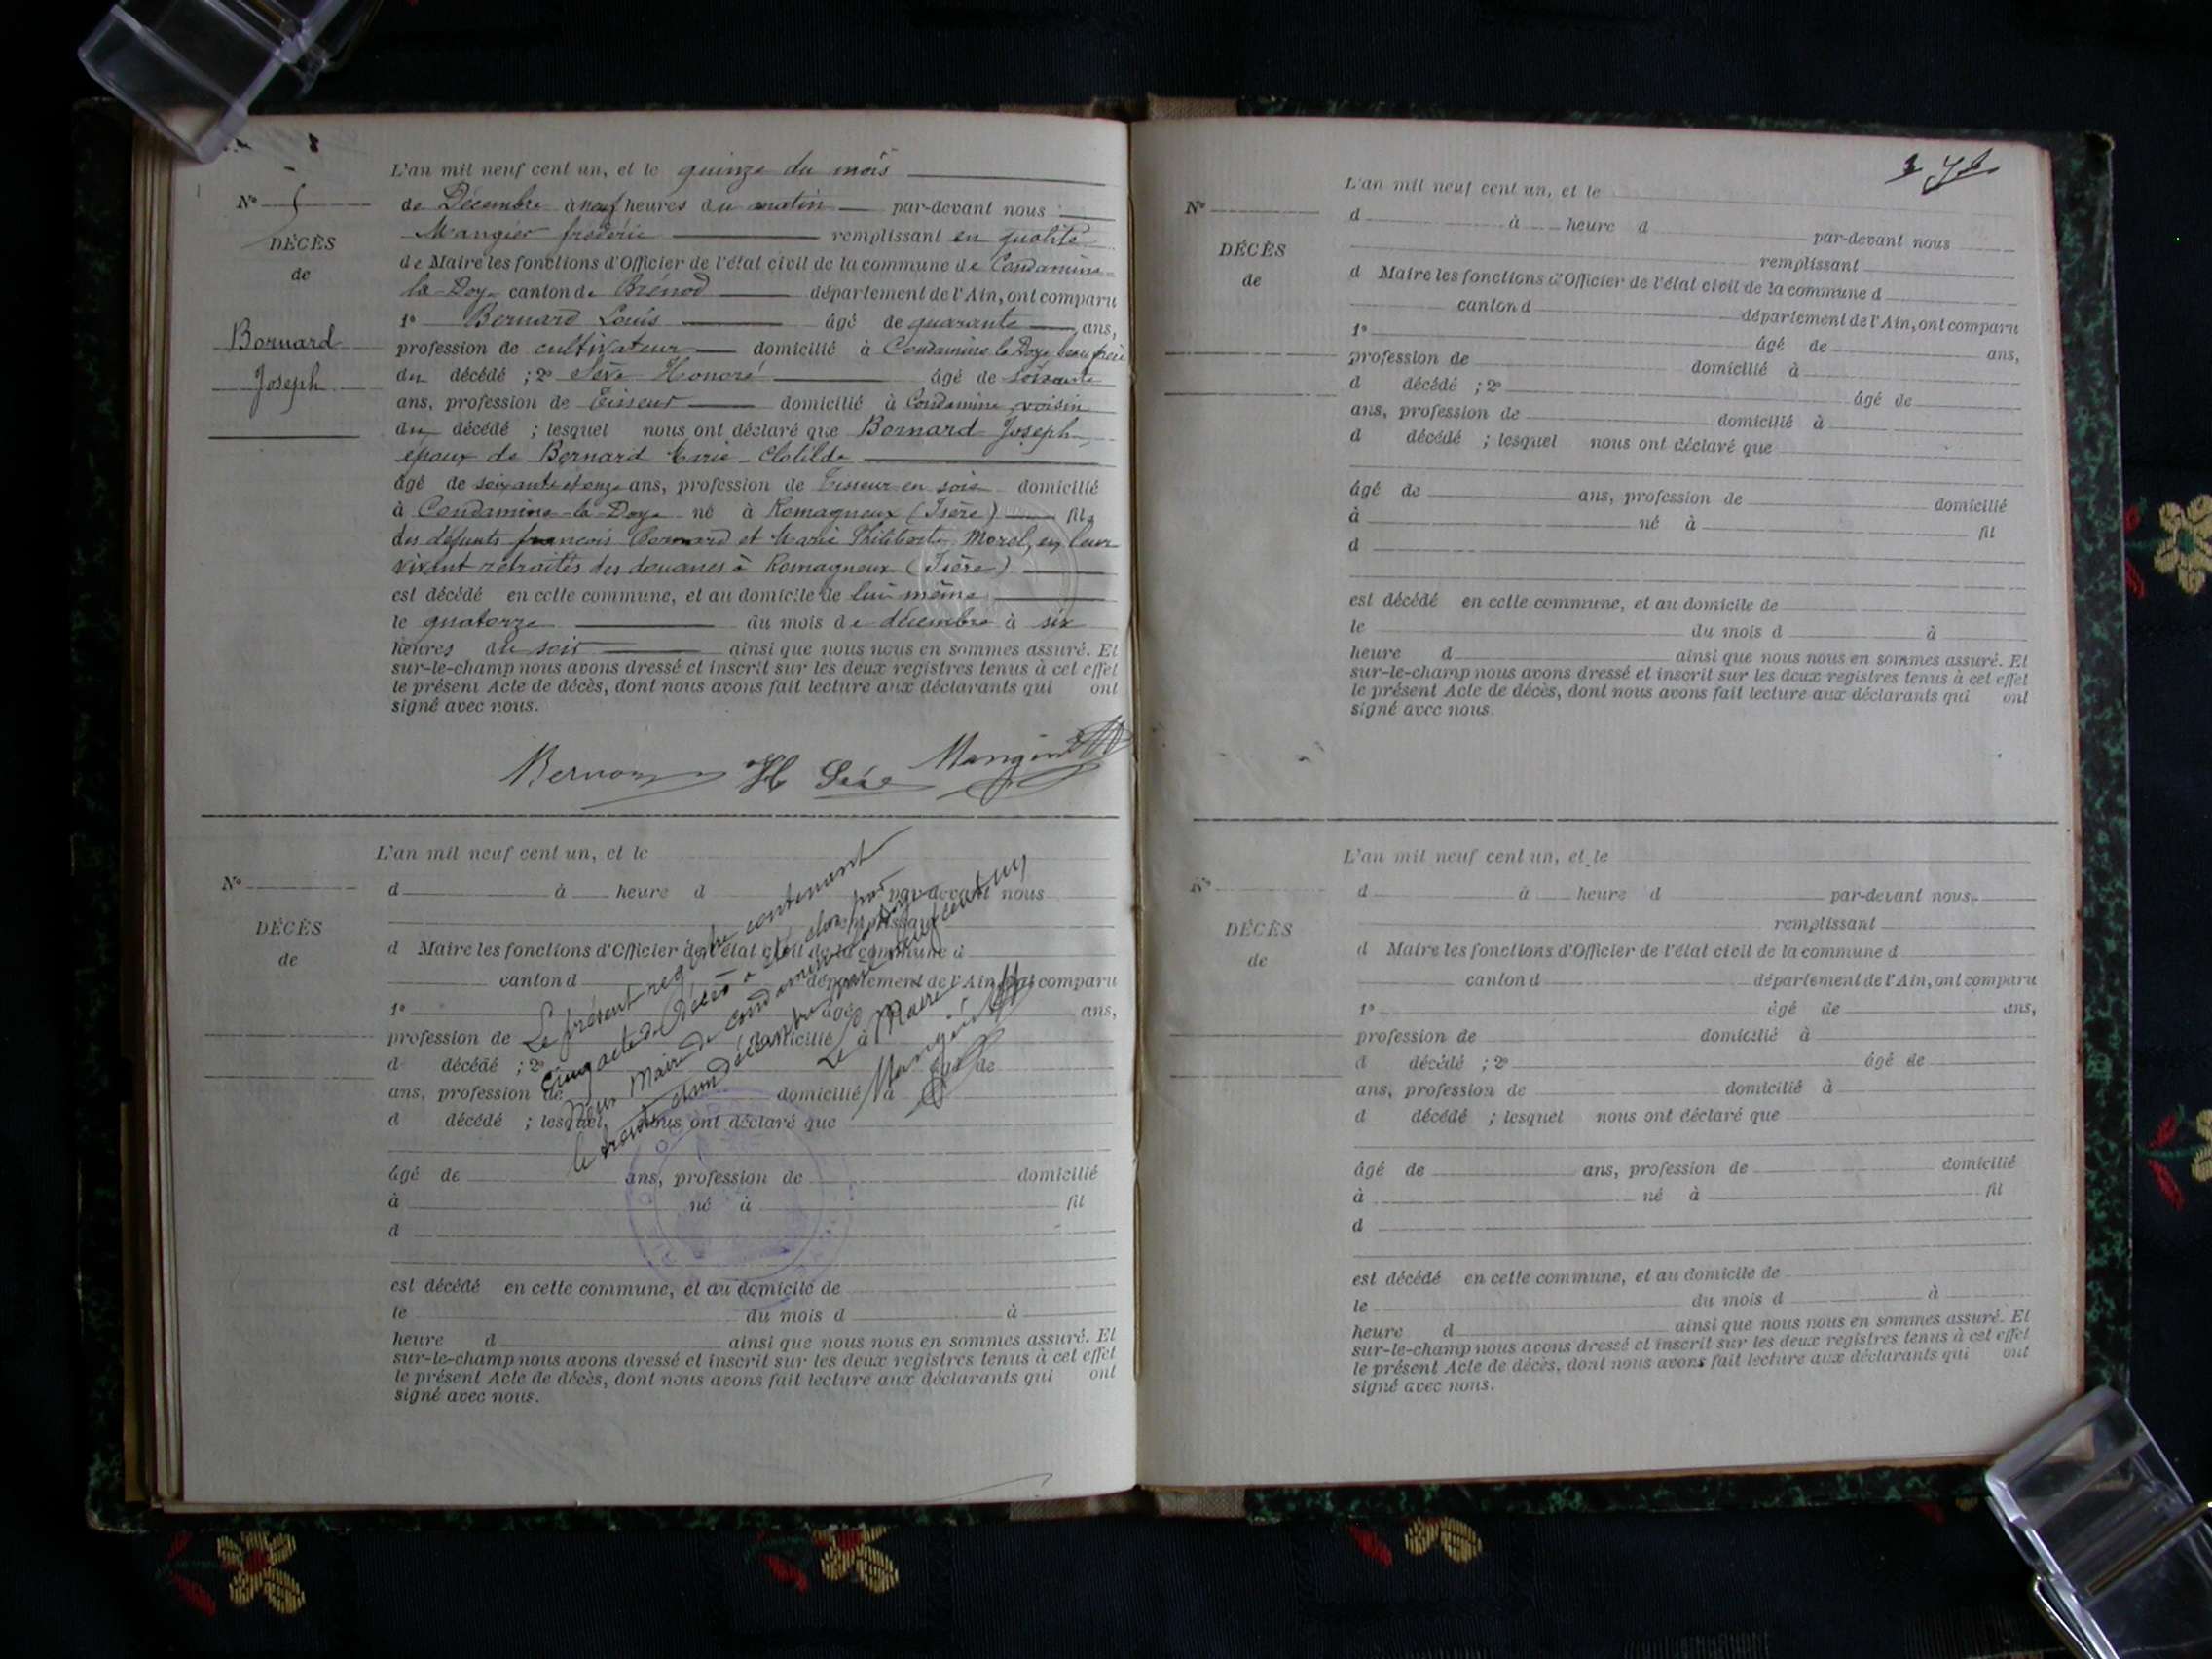 L'an mil neuf cent un, et le quinze du mois
N° 5
de Décembre à neuf heures du matin par-devant nous
Mangier frédéric remplissant en qualité
DÉCÈS
de
de Maire les fonctions d'Officier de l'état civil de la commune de Condamine-
la-Doye canton de Brénod département de l'Ain, ont comparu
1° Bernard Louis âgé de quarante ans,
Bornard
Joseph
profession de cultivateur domicilié à Condamine la Doye beau frère
du décédé ; 2° Sève Honoré âgé de soixante
ans, profession de Tisseur domicilié à Condamine, voisin
du décédé ; lesquel nous ont déclaré que Bornard Joseph
époux de Bernard Marie-Clotilde
âgé de soixante et onze ans, profession de Tisseur en soie domicilié
à Condamine-la-Doye né à Romagneux (Isère) fils
des défunts françois Bornard et Marie Philiberte Morel, en leur
vivant retraités des douanes à Romagneux (Isère)
est décédé en cette commune, et au domicile de lui-même
le quatorze du mois de décembre à six
heures du soir ainsi que nous nous en sommes assuré. Et
sur-le-champ nous avons dressé et inscrit sur les deux registres tenus à cet effet
le présent Acte de décès, dont nous avons fait lecture aux déclarants qui ont
signé avec nous.
H Sève
L'an mil neuf cent un, et le
N°
d à heure d par-devant nous
remplissant
DÉCÈS
de
d Maire les fonctions d'Officier de l'état civil de la commune d
canton d département de l'Ain, ont comparu
1° âgé de ans,
profession de domicilié à
d décédé ; 2° âgé de
ans, profession de domicilié à
d décédé ; lesquel nous ont déclaré que
âgé de ans, profession de domicilié
à né à fil
d
est décédé en cette commune, et au domicile de
le du mois d à
heure d ainsi que nous nous en sommes assuré. Et
sur-le-champ nous avons dressé et inscrit sur les deux registres tenus à cet effet
le présent Acte de décès, dont nous avons fait lecture aux déclarants qui ont
signé avec nous.
Le présent registre contenant
cinq actes de décès a été clos par
Nous Maire de Condamine la Doye
le trente et un décembre mil neuf cent un
Le Maire
L'an mil neuf cent un, et le
N°
d à heure d par-devant nous
remplissant
DÉCÈS
de
d Maire les fonctions d'Officier de l'état civil de la commune d
canton d département de l'Ain, ont comparu
1° âgé de ans,
profession de domicilié à
d décédé ; 2° âgé de
ans, profession de domicilié à
d décédé ; lesquel nous ont déclaré que
âgé de ans, profession de domicilié
à né à fil
d
est décédé en cette commune, et au domicile de
le du mois d à
heure d ainsi que nous nous en sommes assuré. Et
sur-le-champ nous avons dressé et inscrit sur les deux registres tenus à cet effet
le présent Acte de décès, dont nous avons fait lecture aux déclarants qui ont
signé avec nous.
L'an mil neuf cent un, et le
N°
d à heure d par-devant nous
remplissant
DÉCÈS
de
d Maire les fonctions d'Officier de l'état civil de la commune d
canton d département de l'Ain, ont comparu
1° âgé de ans,
profession de domicilié à
d décédé ; 2° âgé de
ans, profession de domicilié à
d décédé ; lesquel nous ont déclaré que
âgé de ans, profession de domicilié
à né à fil
d
est décédé en cette commune, et au domicile de
le du mois d à
heure d ainsi que nous nous en sommes assuré. Et
sur-le-champ nous avons dressé et inscrit sur les deux registres tenus à cet effet
le présent Acte de décès, dont nous avons fait lecture aux déclarants qui ont
signé avec nous.